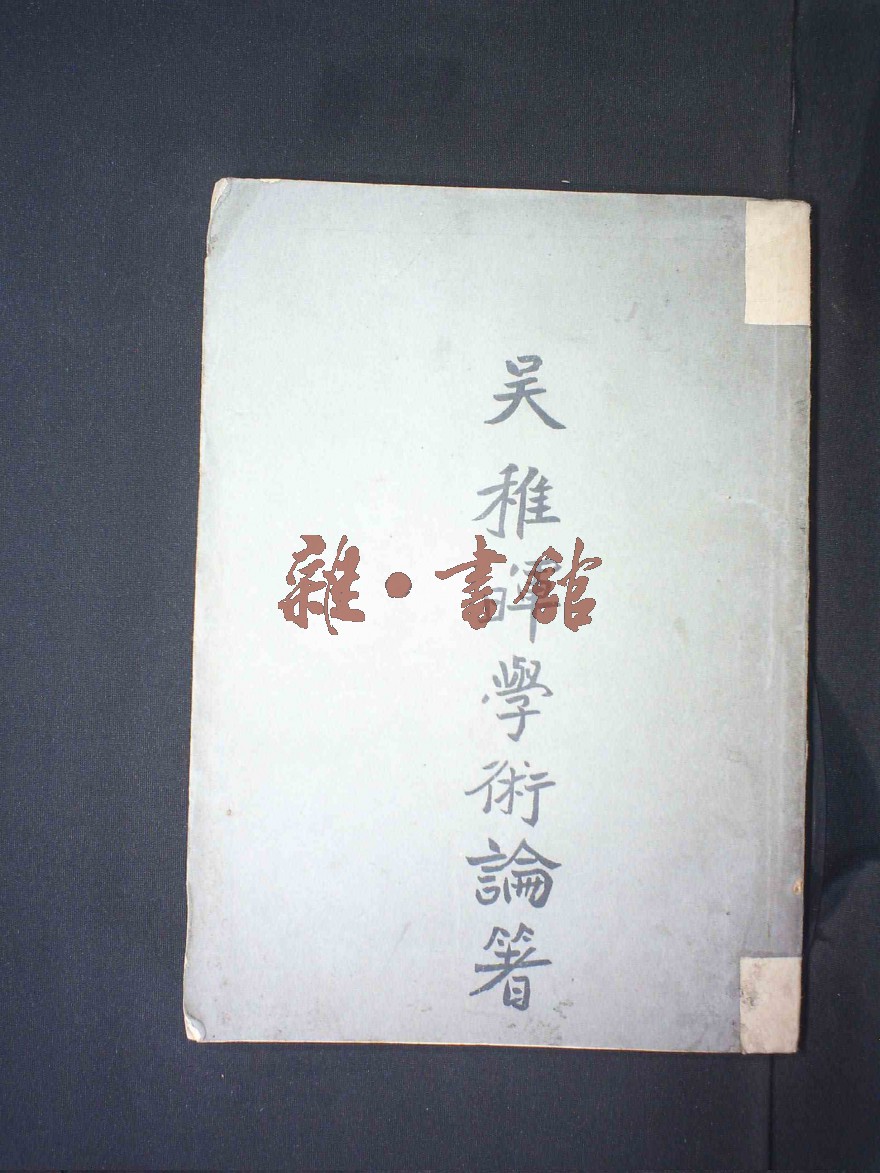 吴稚暉學術論箸
雜·書館